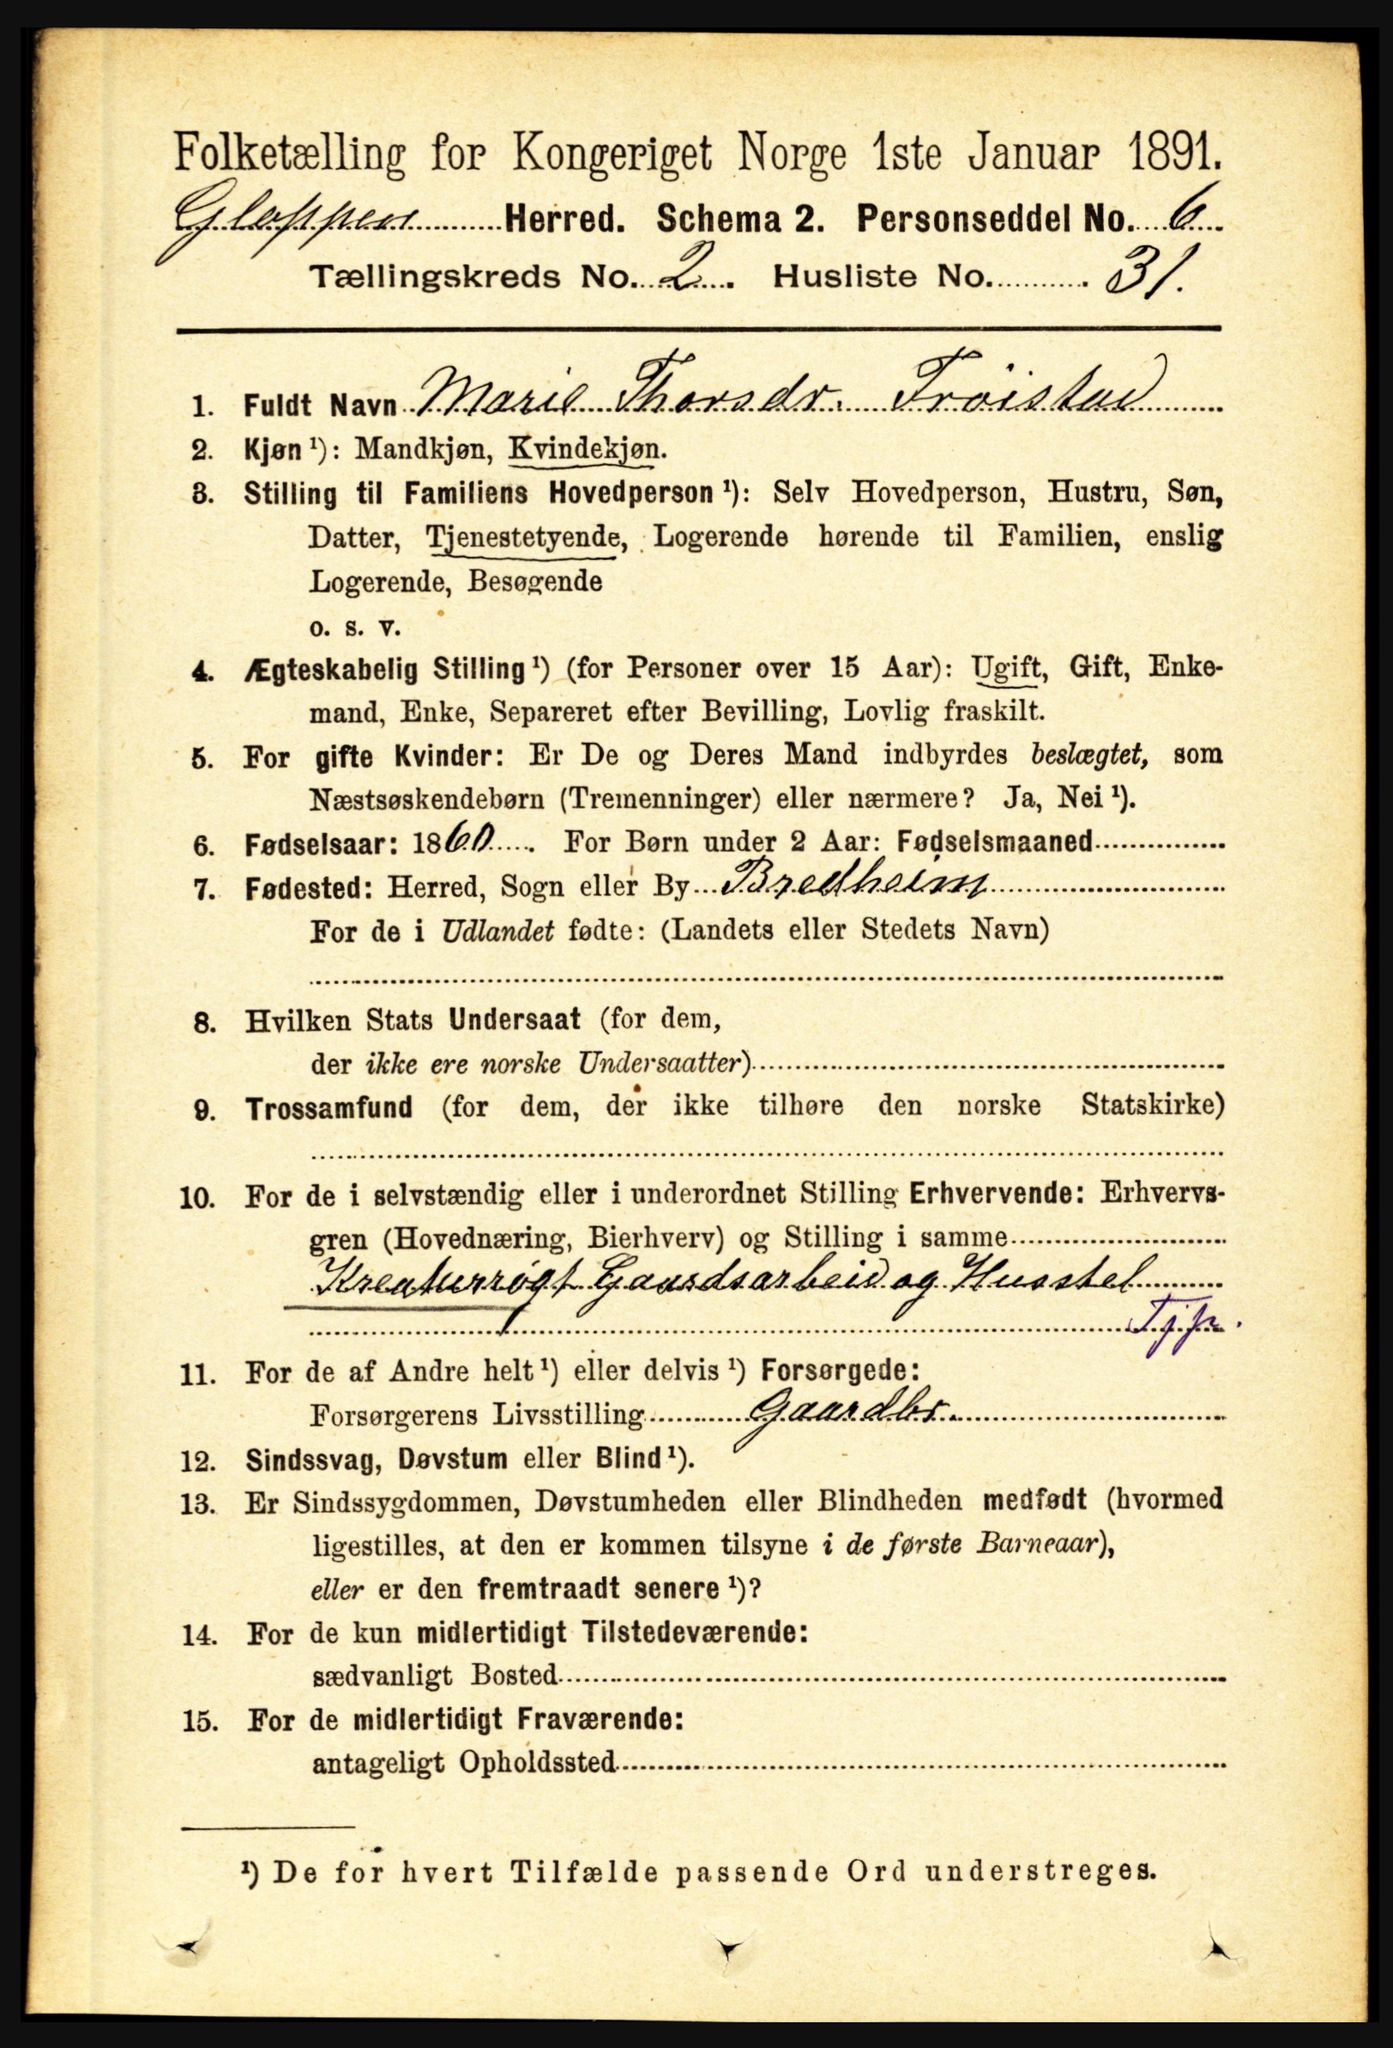 Folketælling for Kongeriget Norge 1ste Januar 1891.
Gloppen Herred. Schema 2. Personseddel No. 6
Tællingskreds No. 2. Husliste No. 31.
1. Fuldt Navn Marie Thorsdr. Fröistad
2. Kjøn ¹): Mandkjøn, Kvindekjøn.
3. Stilling til Familiens Hovedperson ¹): Selv Hovedperson, Hustru, Søn,
Datter, Tjenestetyende, Logerende hørende til Familien, enslig
Logerende, Besøgende
o. s. v.
4. Ægteskabelig Stilling ¹) (for Personer over 15 Aar): Ugift, Gift, Enke-
mand, Enke, Separeret efter Bevilling, Lovlig fraskilt.
5. For gifte Kvinder: Er De og Deres Mand indbyrdes beslægtet, som
Næstsøskendebørn (Tremenninger) eller nærmere? Ja, Nei ¹).
6. Fødselsaar: 1860. For Børn under 2 Aar: Fødselsmaaned
7. Fødested: Herred, Sogn eller By Bredheim
For de i Udlandet fødte: (Landets eller Stedets Navn)
8. Hvilken Stats Undersaat (for dem,
der ikke ere norske Undersaatter)
9. Trossamfund (for dem, der ikke tilhøre den norske Statskirke)
10. For de i selvstændig eller i underordnet Stilling Erhvervende: Erhvervs-
gren (Hovednæring, Bierhverv) og Stilling i samme
Kreaturrögt Gaardsarbeid og Husstel
Tjp.
11. For de af Andre helt ¹) eller delvis ¹) Forsørgede:
Forsørgerens Livsstilling Gaardbr.
12. Sindssvag, Døvstum eller Blind ¹).
13. Er Sindssygdommen, Døvstumheden eller Blindheden medfødt (hvormed
ligestilles, at den er kommen tilsyne i de første Barneaar),
eller er den fremtraadt senere ¹)?
14. For de kun midlertidigt Tilstedeværende:
sædvanligt Bosted
15. For de midlertidigt Fraværende:
antageligt Opholdssted
¹) De for hvert Tilfælde passende Ord understreges.